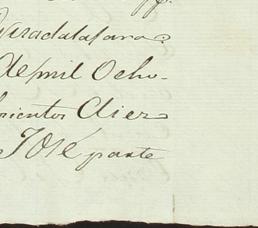 Guadalajara
de mil Ocho-
cientos Diez
José parte